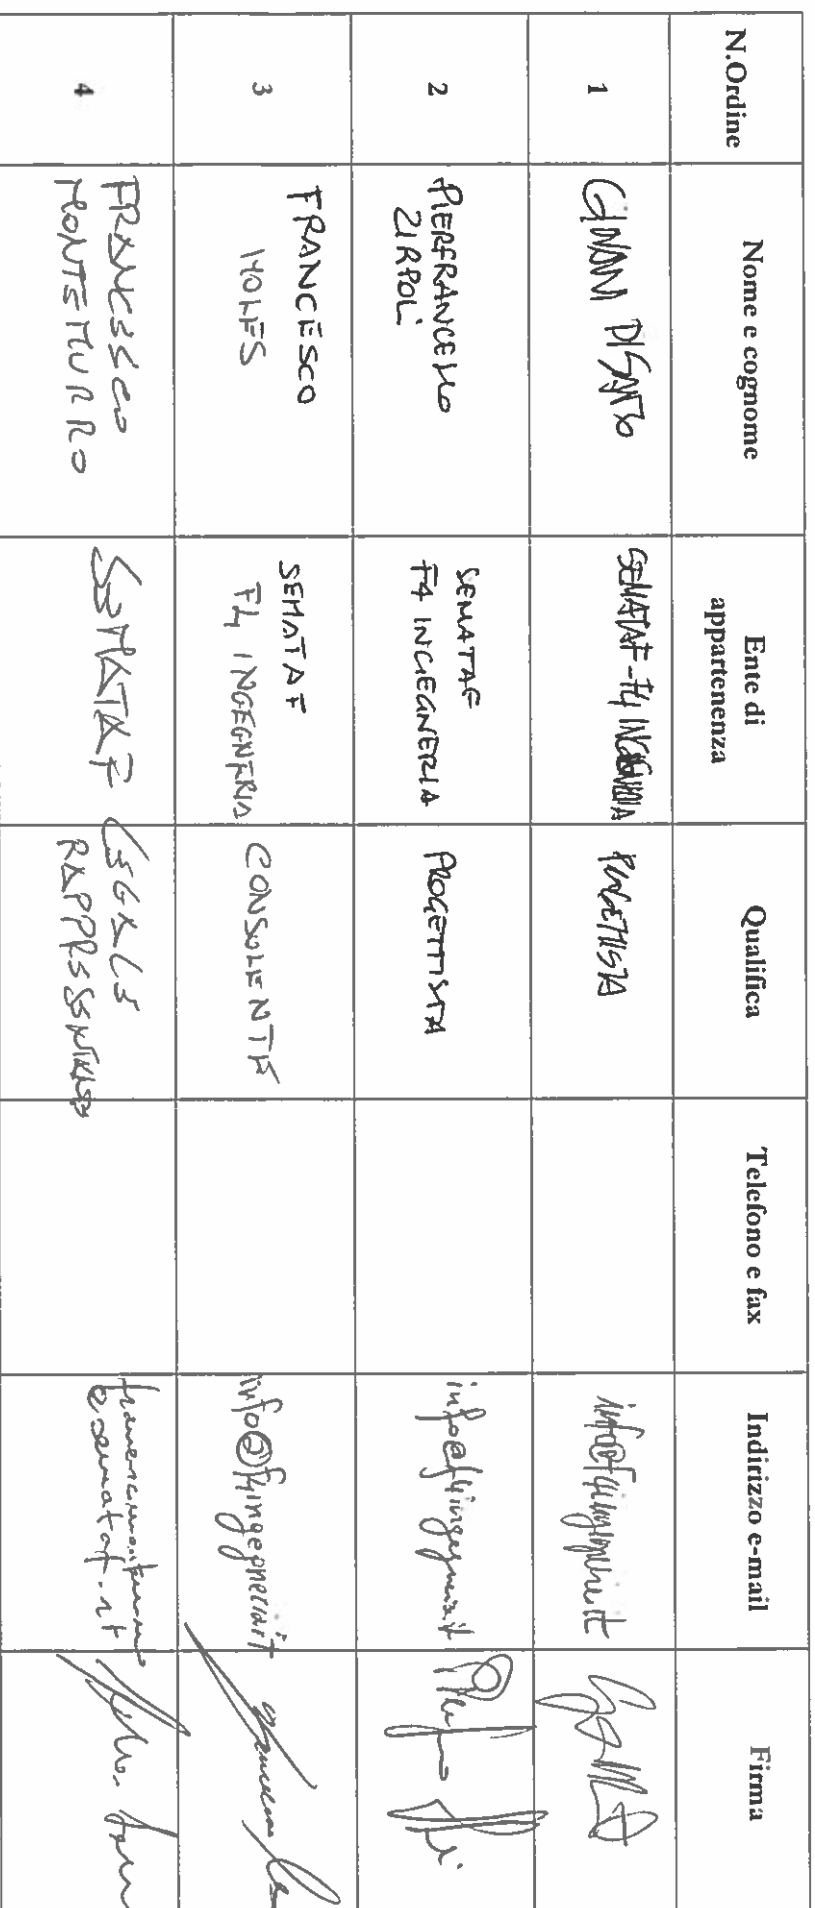 N.Ordine Nome e cognome Ente di appartenenza Qualifica Telefono e fax Indirizzo e-mail Firma
1 GIOVANNI DI SANTO SEMATAF-F4 INGEGNERIA PROGETTISTA
2 PIERFRANCESCO ZIRPOLI SEMATAF F4 INGEGNERIA PROGETTISTA info@f4ingegneria.it
3 FRANCESCO MOLFS SEMATAF F4 INGEGNERIA CONSULENTE info@f4ingegneria.it
4 FRANCESCO MONTEMURRO SEMATAF LEGALE @semataf.it